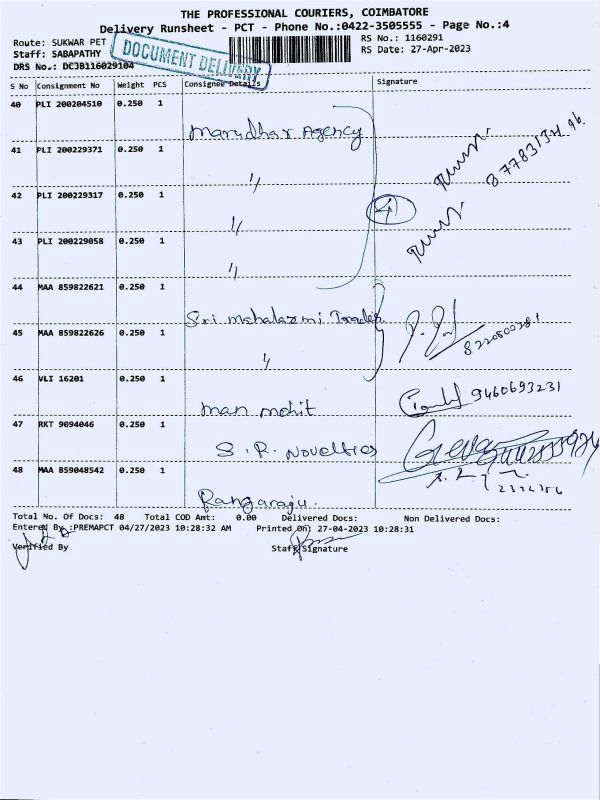 THE PROFESSIONAL COURIERS, COIMBATORE
Delivery Runsheet - PCT - Phone No.:0422-3505555 - Page No.:4
Route: SUKWAR PET
RS No.: 1160291
Staff: SABAPATHY
RS Date: 27-Apr-2023
DRS No.: DC3B116029104
DOCUMENT DELIVERY
S No Consignment No Weight PCS Consignee Details Signature
40 PLI 200204510 0.250 1
Marudhar Agency
41 PLI 200229371 0.250 1
〃
8778313496
42 PLI 200229317 0.250 1
4
〃
43 PLI 200229058 0.250 1
〃
44 MAA 859822621 0.250 1
Sri mahalaxmi Traders
45 MAA 859822626 0.250 1
〃
46 VLI 16201 0.250 1
man mohit 9460693231
47 RKT 9094046 0.250 1
S.R. Novelties
48 MAA 859048542 0.250 1
Rangaraju.
Total No. Of Docs: 48 Total COD Amt: 0.00 Delivered Docs: Non Delivered Docs:
Entered By :PREMAPCT 04/27/2023 10:28:32 AM Printed On: 27-04-2023 10:28:31
Verified By Staff Signature